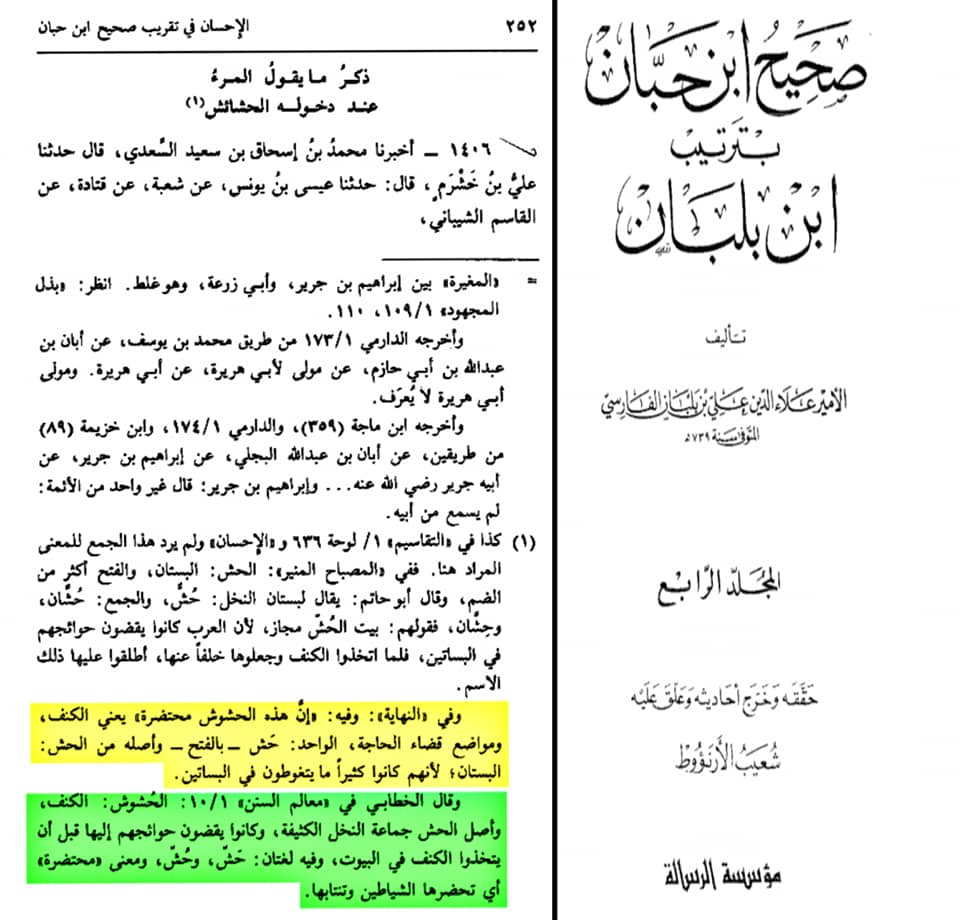 ٢٥٢ الإحسان في تقريب صحيح ابن حبان
ذكرُ ما يقولُ المرءُ
عند دخوله الحشائش(١)
١٤٠٦ ــ أخبرنا محمدُ بنُ إسحاق بن سعيد السَّعدي، قال حدثنا
عليُّ بنُ خَشْرَمٍ، قال: حدثنا عيسى بنُ يونس، عن شعبة، عن قتادة، عن
القاسم الشيباني،
= «المغيرة» بين إبراهيم بن جرير، وأبي زرعة، وهو غلط. انظر: «بذل
المجهود» ١٠٩/١، ١١٠.
وأخرجه الدارمي ١٧٣/١ من طريق محمد بن يوسف، عن أبان بن
عبدالله بن أبي حازم، عن مولى لأبي هريرة، عن أبي هريرة. ومولى
أبي هريرة لا يُعرَف.
وأخرجه ابن ماجة (٣٥٩)، والدارمي ١٧٤/١، وابن خزيمة (٨٩)
من طريقين، عن أبان بن عبدالله البجلي، عن إبراهيم بن جرير، عن
أبيه جرير رضي الله عنه... وإبراهيم بن جرير: قال غير واحد من الأئمة:
لم يسمع من أبيه.
(١) كذا في «التقاسيم» ١/ لوحة ٦٣٦ و«الإحسان» ولم يرد هذا الجمع للمعنى
المراد هنا. ففي «المصباح المنير»: الحش: البستان، والفتح أكثر من
الضم، وقال أبو حاتم: يقال لبستان النخل: حُشٌّ، والجمع: حُشَّان،
وحِشَّان، فقولهم: بيت الحُشّ مجاز، لأن العرب كانوا يقضون حوائجهم
في البساتين، فلما اتخذوا الكنف وجعلوها خلفاً عنها، أطلقوا عليها ذلك
الاسم.
وفي «النهاية»: وفيه: «إنَّ هذه الحشوش محتضرة» يعني الكنف،
ومواضع قضاء الحاجة، الواحد: حَش ــ بالفتح ــ وأصله من الحش:
البستان؛ لأنهم كانوا كثيراً ما يتغوطون في البساتين.
وقال الخطابي في «معالم السنن» ١٠/١: الحُشوش: الكنف،
وأصل الحش جماعة النخل الكثيفة، وكانوا يقضون حوائجهم إليها قبل أن
يتخذوا الكنف في البيوت، وفيه لغتان: حَشّ، وحُشّ، ومعنى «محتضرة»
أي تحضرها الشياطين وتنتابها.
صَحِيحُ ابْنِ حِبَّانَ
بِتَرْتِيبِ
ابْنِ بَلْبَانَ
تأليف
الأمير علاء الدين علي بن بلبان الفارسي
المتوفى سنة ٧٣٩ هـ
المجلد الرابع
حققه وخرج أحاديثه وعلق عليه
شعيب الأرنؤوط
مؤسسة الرسالة